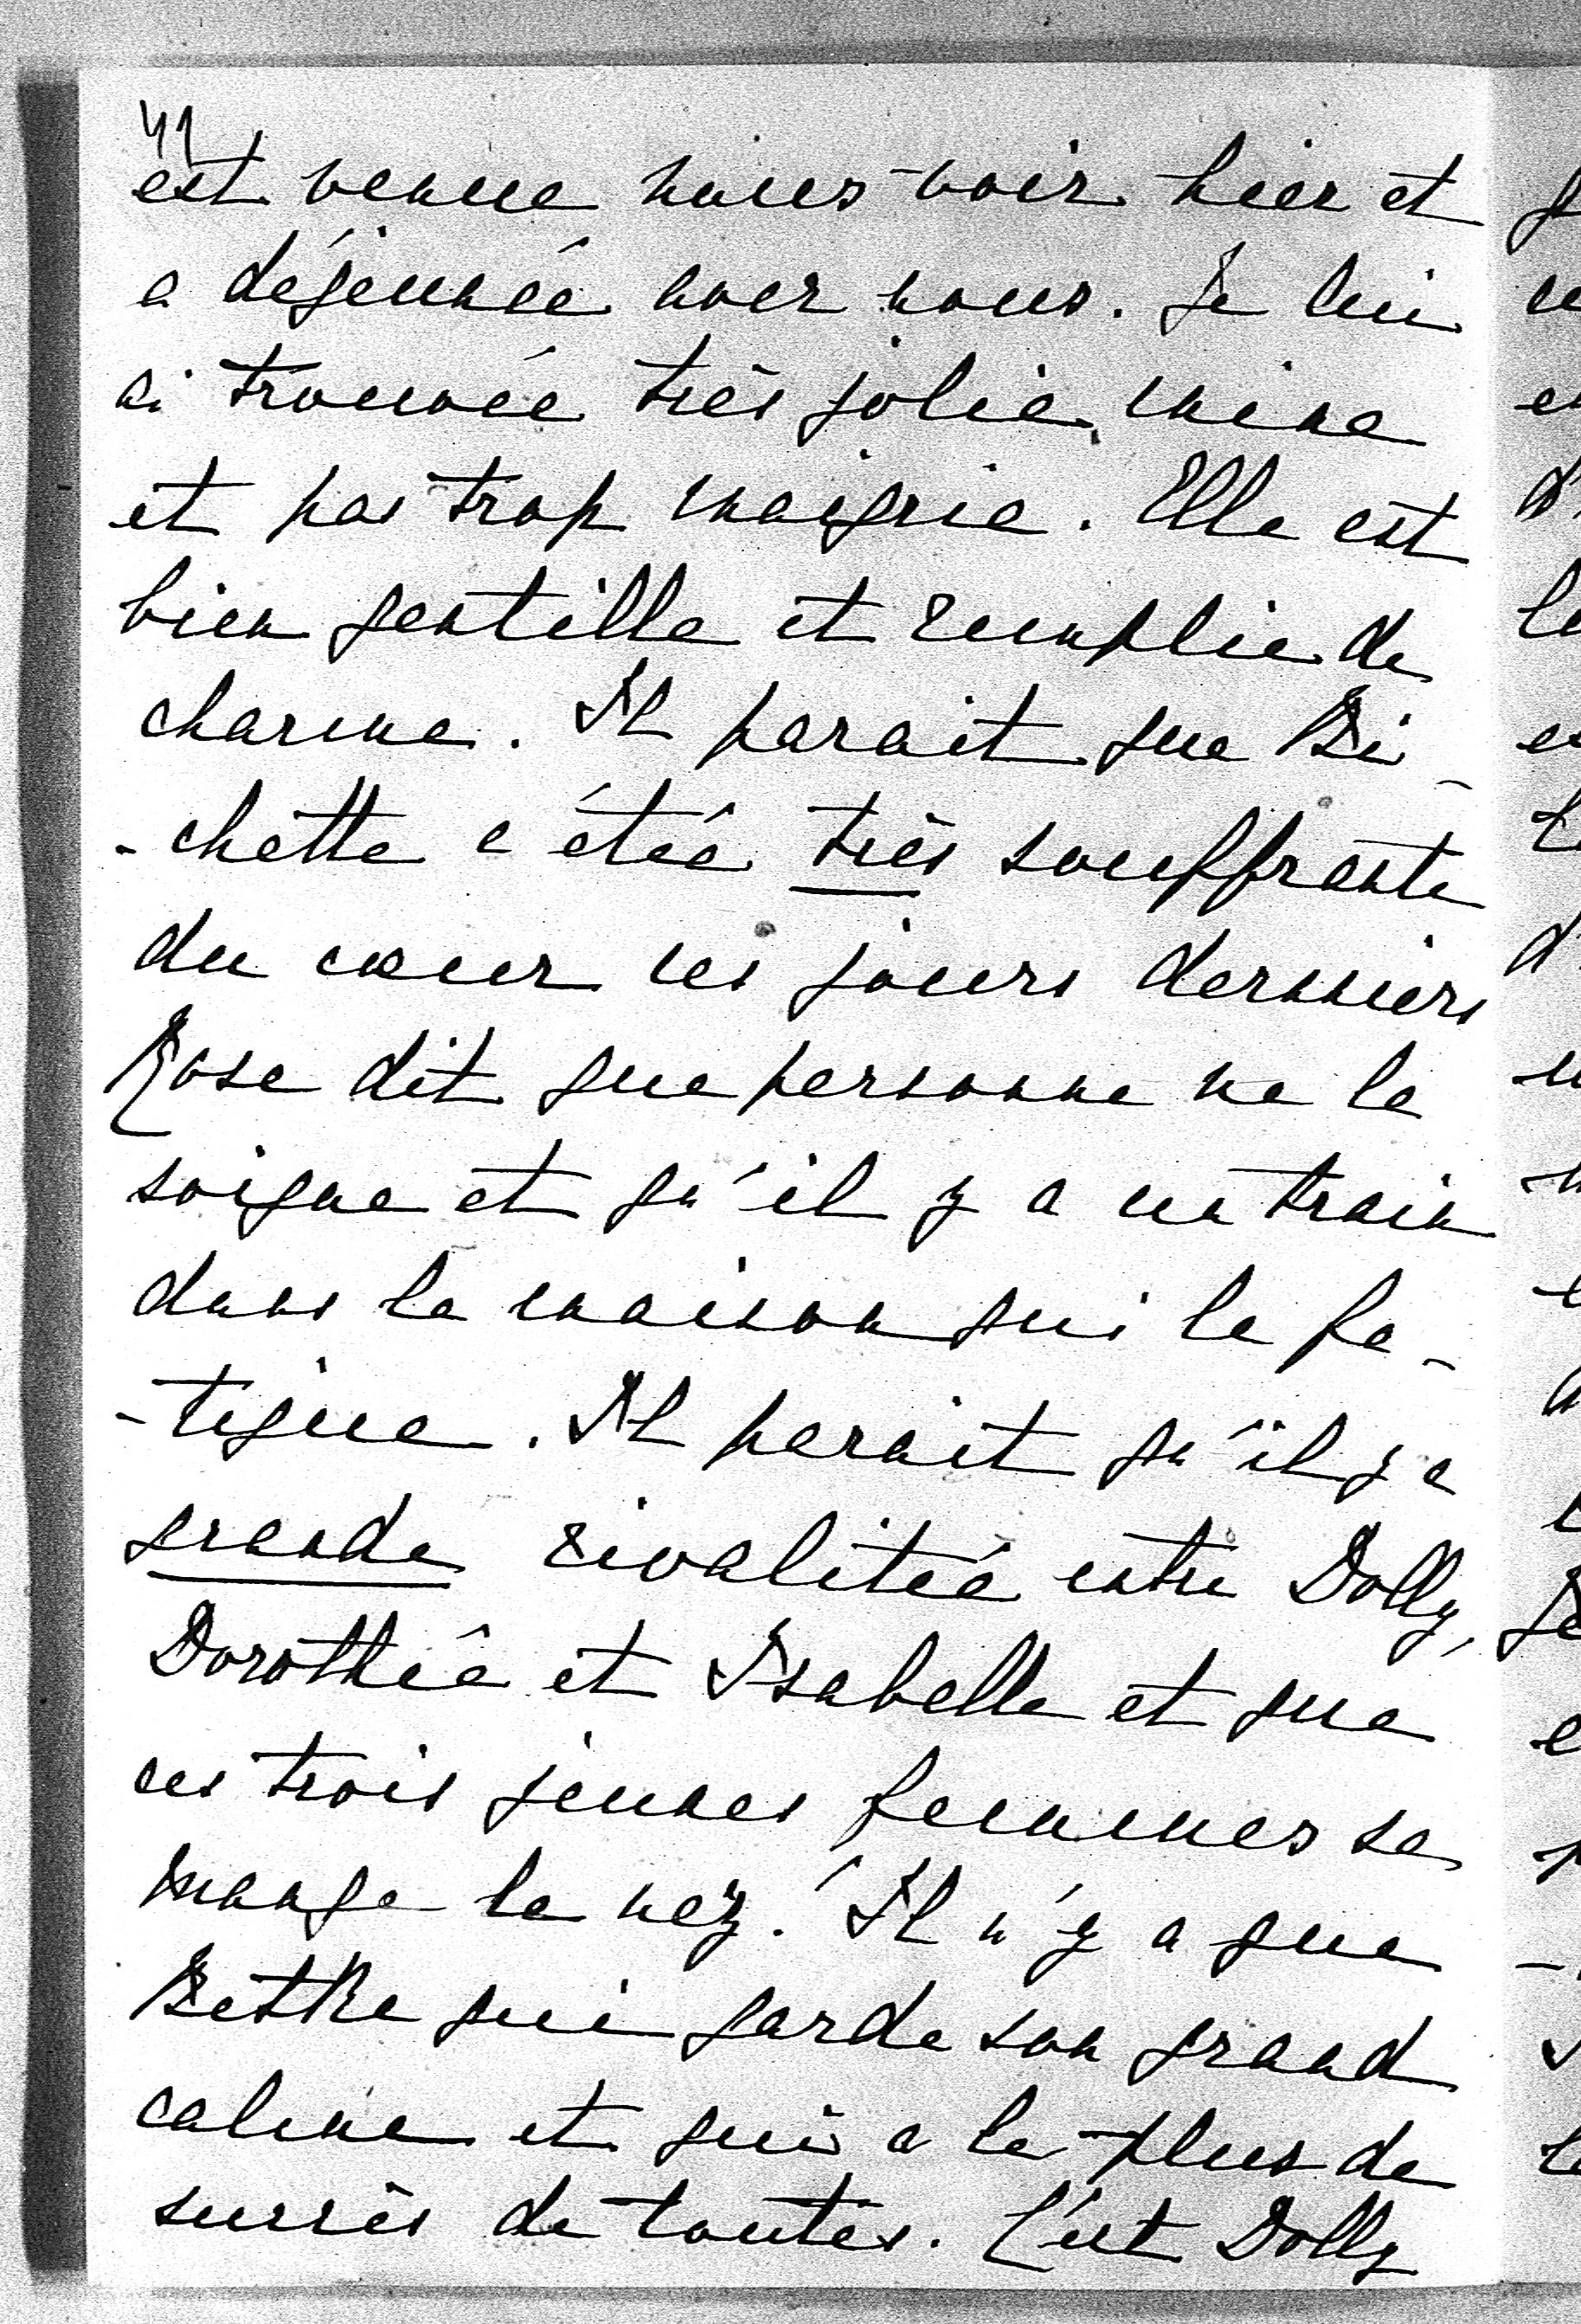 41
est venue nous voir hier et
a déjeunée avec nous. Je lui
ai trouvée très jolie mine
et pas trop maigrie. Elle est
bien gentille et remplie de
charme. Il parait que Bi-
-chette a étée très souffrante
du cœur ces jours derniers
Rose dit que personne ne la
soigne et qu'il y a un train
dans la maison qui la fa-
-tigue. Il parait qu'il y a
grande rivalitée entre Dolly,
Dorothée et Isabelle et que
ces trois jeunes femmes se
mange le nez! Il n'y a que
Betka qui garde son grand
calme et qui a le plus de
succès de toutes. C'est Dolly